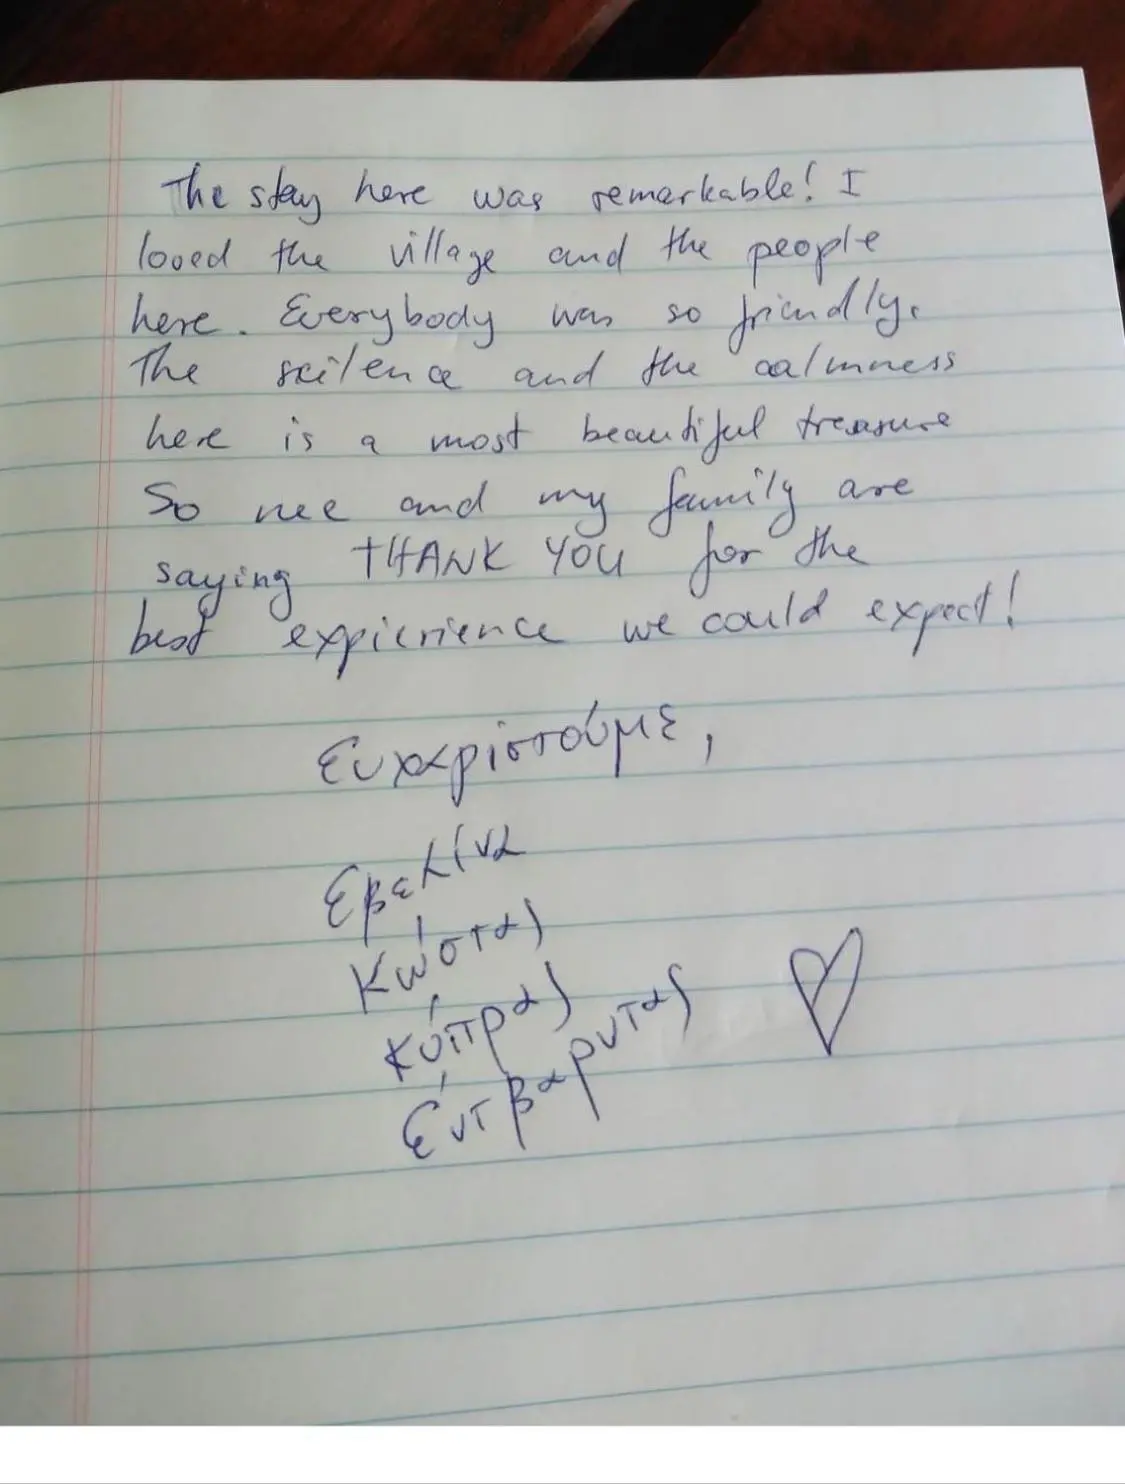 The stay here was remarkable! I
loved the village and the people
here. Everybody was so friendly.
The scilence and the calmness
here is a most beautiful treasure
So mee and my family are
saying THANK YOU for the
best expierience we could expect!
Ευχαρίστούμε,
Εβελίνα
Κώστας
Κύπρας
Έντβαρντας